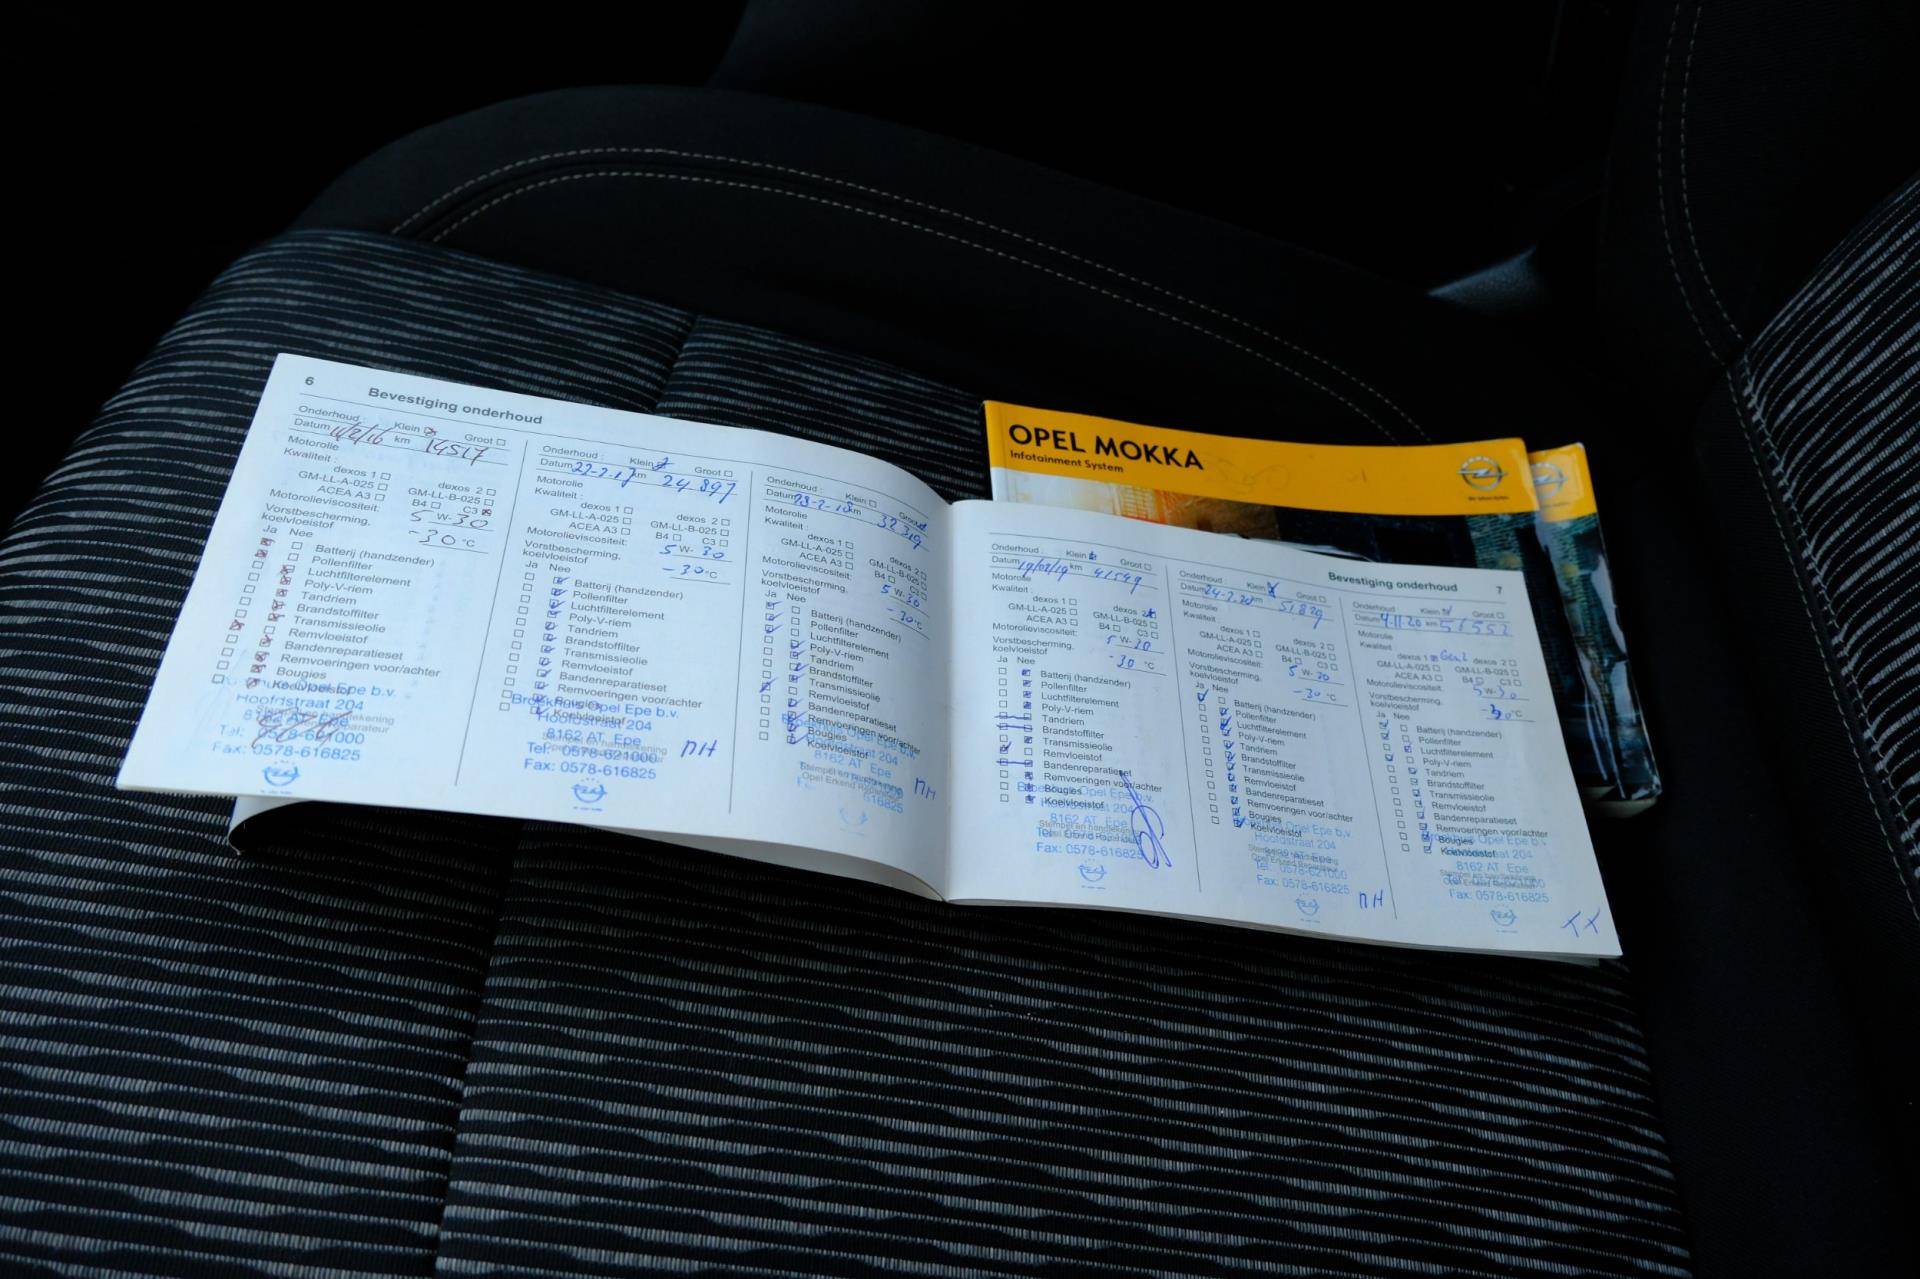 6 Bevestiging onderhoud
Onderhoud : Klein Groot
Datum 11/2/16 km 14517
Motorolie
Kwaliteit :
dexos 1 dexos 2
GM-LL-A-025 GM-LL-B-025
ACEA A3 B4 C3
Motorolieviscositeit: 5 W- 30
Vorstbescherming, koelvloeistof -30 °C
Ja Nee
Batterij (handzender)
Pollenfilter
Luchtfilterelement
Poly-V-riem
Tandriem
Brandstoffilter
Transmissieolie
Remvloeistof
Bandenreparatieset
Remvoeringen voor/achter
Bougies
Koelvloeistof
Opel Epe b.v.
Hoofdstraat 204
8162 AT Epe
Tel: 0578-621000
Fax: 0578-616825
Onderhoud : Klein Groot
Datum 22-2-17 km 24897
Motorolie
Kwaliteit :
dexos 1 dexos 2
GM-LL-A-025 GM-LL-B-025
ACEA A3 B4 C3
Motorolieviscositeit: 5 W- 30
Vorstbescherming, koelvloeistof -30 °C
Ja Nee
Batterij (handzender)
Pollenfilter
Luchtfilterelement
Poly-V-riem
Tandriem
Brandstoffilter
Transmissieolie
Remvloeistof
Bandenreparatieset
Remvoeringen voor/achter
Bougies
Koelvloeistof
Broekhuis Opel Epe b.v.
Hoofdstraat 204
8162 AT Epe
Tel: 0578-621000
Fax: 0578-616825
Onderhoud : Klein Groot
Datum 28-2-18 km 32319
Motorolie
Kwaliteit :
dexos 1 dexos 2
GM-LL-A-025 GM-LL-B-025
ACEA A3 B4 C3
Motorolieviscositeit: 5 W- 30
Vorstbescherming, koelvloeistof -30 °C
Ja Nee
Batterij (handzender)
Pollenfilter
Luchtfilterelement
Poly-V-riem
Tandriem
Brandstoffilter
Transmissieolie
Remvloeistof
Bandenreparatieset
Remvoeringen voor/achter
Bougies
Koelvloeistof
8162 AT Epe
Stempel en handtekening
Opel Erkend Reparateur
OPEL MOKKA
Infotainment System
Bevestiging onderhoud 7
Onderhoud : Klein Groot
Datum 19/02/19 km 41549
Motorolie
Kwaliteit :
dexos 1 dexos 2
GM-LL-A-025 GM-LL-B-025
ACEA A3 B4 C3
Motorolieviscositeit: 5 W- 30
Vorstbescherming, koelvloeistof -30 °C
Ja Nee
Batterij (handzender)
Pollenfilter
Luchtfilterelement
Poly-V-riem
Tandriem
Brandstoffilter
Transmissieolie
Remvloeistof
Bandenreparatieset
Remvoeringen voor/achter
Bougies
Koelvloeistof
Opel Epe b.v.
Hoofdstraat 204
8162 AT Epe
Fax: 0578-616825
Onderhoud : Klein Groot
Datum 24-2-20 km 51829
Motorolie
Kwaliteit :
dexos 1 dexos 2
GM-LL-A-025 GM-LL-B-025
ACEA A3 B4 C3
Motorolieviscositeit: 5 W- 30
Vorstbescherming, koelvloeistof -30 °C
Ja Nee
Batterij (handzender)
Pollenfilter
Luchtfilterelement
Poly-V-riem
Tandriem
Brandstoffilter
Transmissieolie
Remvloeistof
Bandenreparatieset
Remvoeringen voor/achter
Bougies
Koelvloeistof
Opel Epe b.v.
Hoofdstraat 204
Tel: 0578-621000
Fax: 0578-616825
Onderhoud Klein Groot
Datum 9.11.20 km 56552
Motorolie
Kwaliteit
dexos 1 dexos 2
GM-LL-A-025 GM-LL-B-025
ACEA A3 B4 C3
Motorolieviscositeit: 5 W- 30
Vorstbescherming, koelvloeistof -30 °C
Ja Nee
Batterij (handzender)
Pollenfilter
Luchtfilterelement
Poly-V-riem
Tandriem
Brandstoffilter
Transmissieolie
Remvloeistof
Bandenreparatieset
Remvoeringen voor/achter
Bougies
Koelvloeistof
Opel Epe b.v.
8162 AT Epe
Fax: 0578-616825